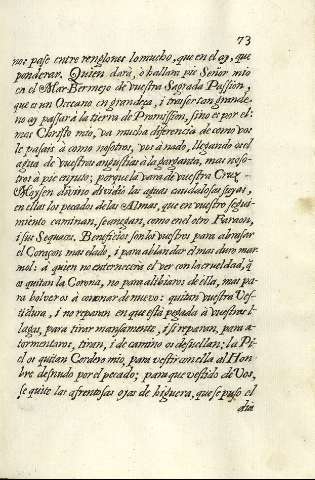 73
nos pase entre renglones lo mucho, que en el ay, que
ponderar. Quien darà, ò hallarà pie Señor mio
en el Mar Bermejo de vuestra Sagrada Passion,
que es un Oceano en grandeza, i traiser tan grande
no ay passar à la tierra de Promission, sino es por el:
mas Christo mio, va mucha diferencia de como vos
le pasais à como nosotros, vos à nado, llegando os el
agua de vuestras angustias à la garganta, mas noso-
tros à pie enjuto; porque la vara de vuestra Cruz
Moysen divino dividiò las aguas caudalosas suyas,
en ellas los pecados de las Almas, que en vuestro segui-
miento caminan, se anegan, como en el otro Faraon,
i sus Sequaces. Beneficios son los vuestros para abrasar
el Coraçon mas elado, i para ablandar el mas duro mar
mol: à quien no enternecerà el ver con la crueldad, q̃
os quitan la Corona, no para aliviaros de ella, mas pa-
ra bolveros à coronar de nuevo: quitan vuestra Ves-
tidura, i no reparan en que està pegada à vuestras l-
lagas, para tirar mansamente, i si reparan, para a-
tormentaros, tiran, i de camino os desuellan; la Pi-
el os quitan Cordero mio, para vestir con ella al Hom
bre desnudo por el pecado; para que vestido de Vos,
se quite las afrentosas ojas de higuera, que se puso el
dia